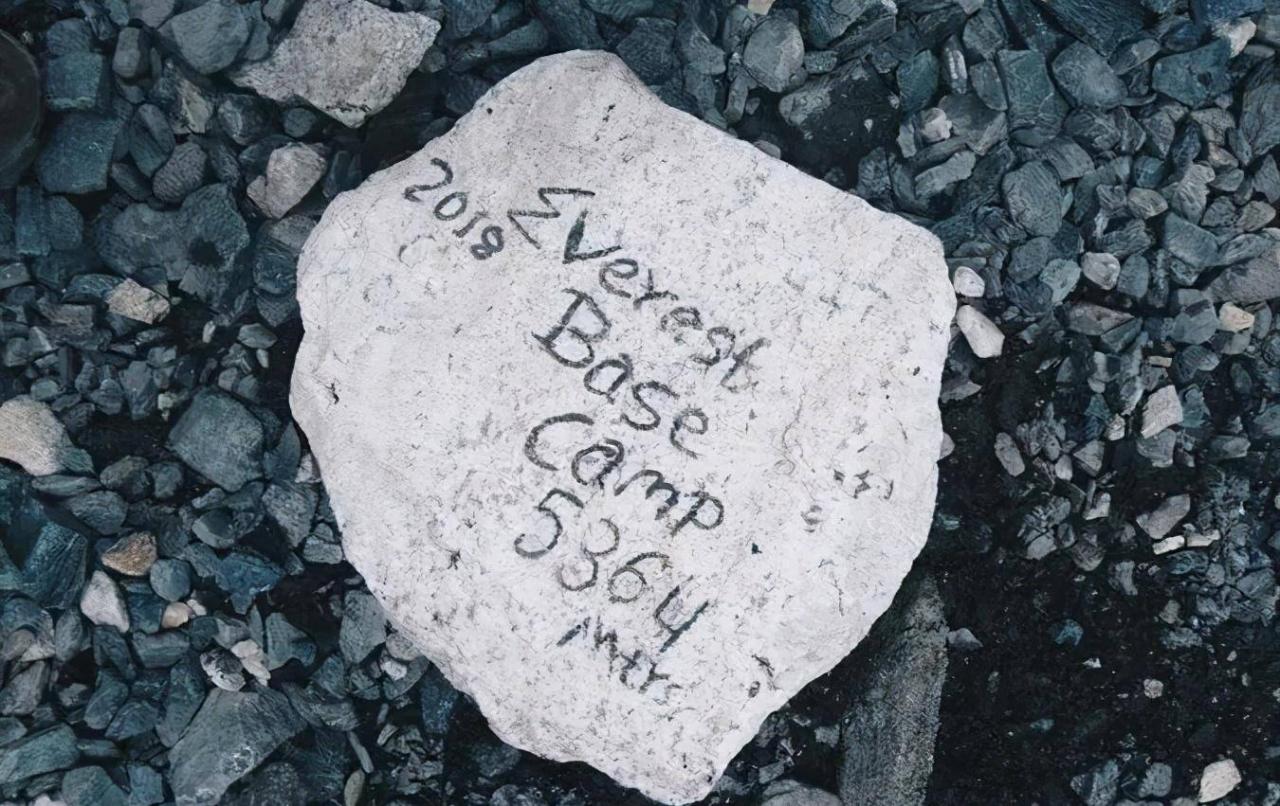 2018
Everest
Base
Camp
5364
Mtrs